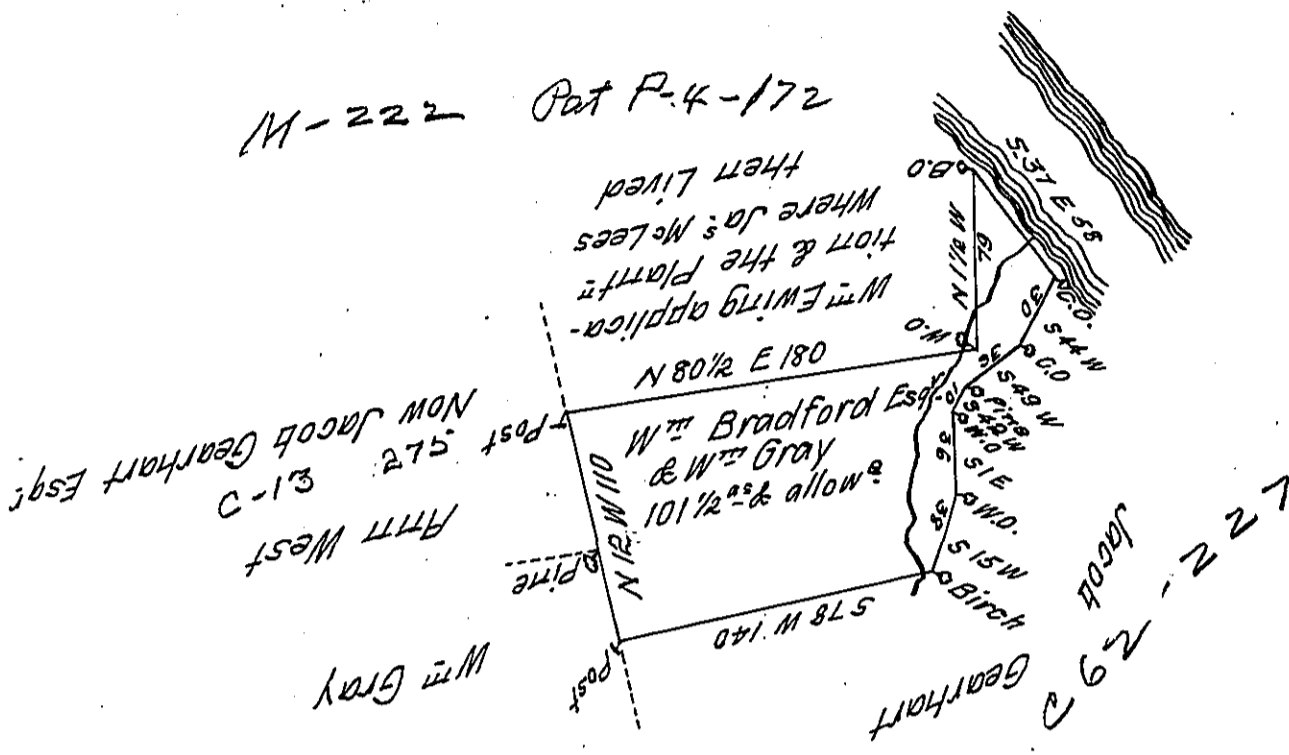 M-222 Pat P-4-172
Wm Ewing applica-
tion & the Plantn
Where Jas McLees
then Lived
B.O
S 37 E 58
N 1 1/2 W
79
C.O.
30
S 44 W
C.O
36
S 49 W
Pine
10
S 42 W
W.O
36
S 1 E
W.O.
38
S 15 W
Birch
W.O
N 80 1/2 E 180
Wm Bradford Esqr
& Wm Gray
101 1/2 as & allowe
Post
N 12 W 110
Pine
Post
S 78 W 140
Ann West
C-13 272
Now Jacob Gearhart Esqr
Wm Gray
Jacob
Gearhart
C 62-227